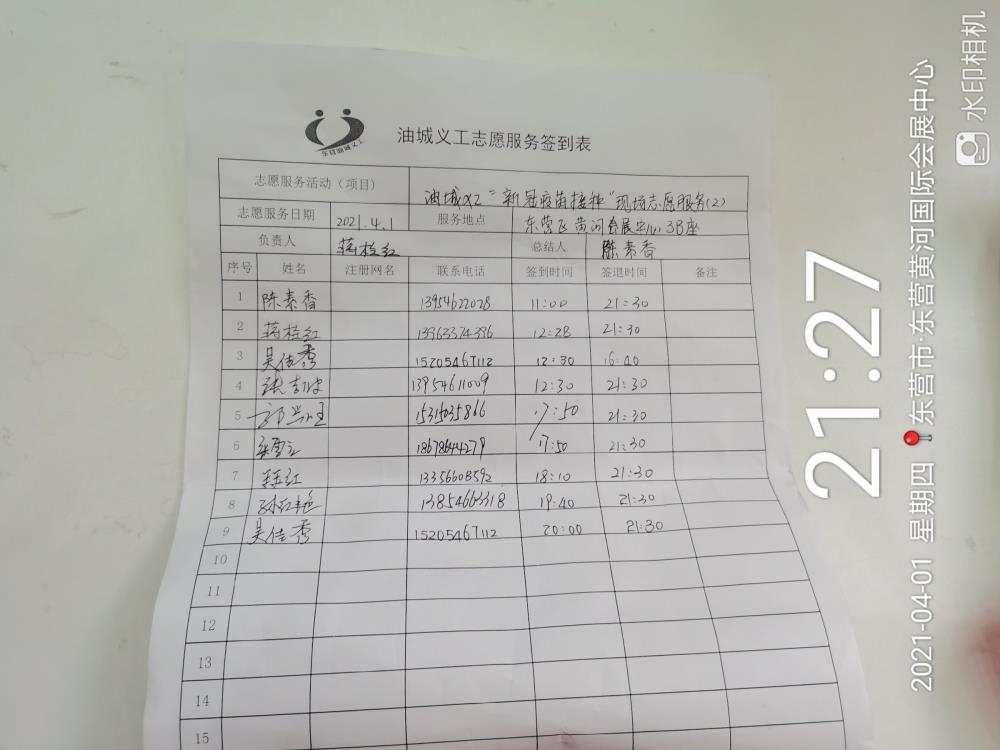 东营油城义工
油城义工志愿服务签到表
志愿服务活动（项目） 油城义工"新冠疫苗接种"现场志愿服务(2)
志愿服务日期 2021.4.1 服务地点 东营区黄河会展中心 3B座
负责人 蒋桂红 总结人 陈素香
序号 姓名 注册网名 联系电话 签到时间 签退时间 备注
1 陈素香 13954622028 11:00 21:30
2 蒋桂红 13963374396 12:28 21:30
3 吴佳秀 15205467112 12:30 16:40
4 13954611009 12:30 21:30
5 17:50 21:30
6 18678644279 17:50 21:30
7 13356608592 18:10 21:30
8 13854663318 19:40 21:30
9 吴佳秀 15205467112 20:00 21:30
10
11
12
13
14
15
21:27
2021-04-01 星期四 东营市·东营黄河国际会展中心
水印相机